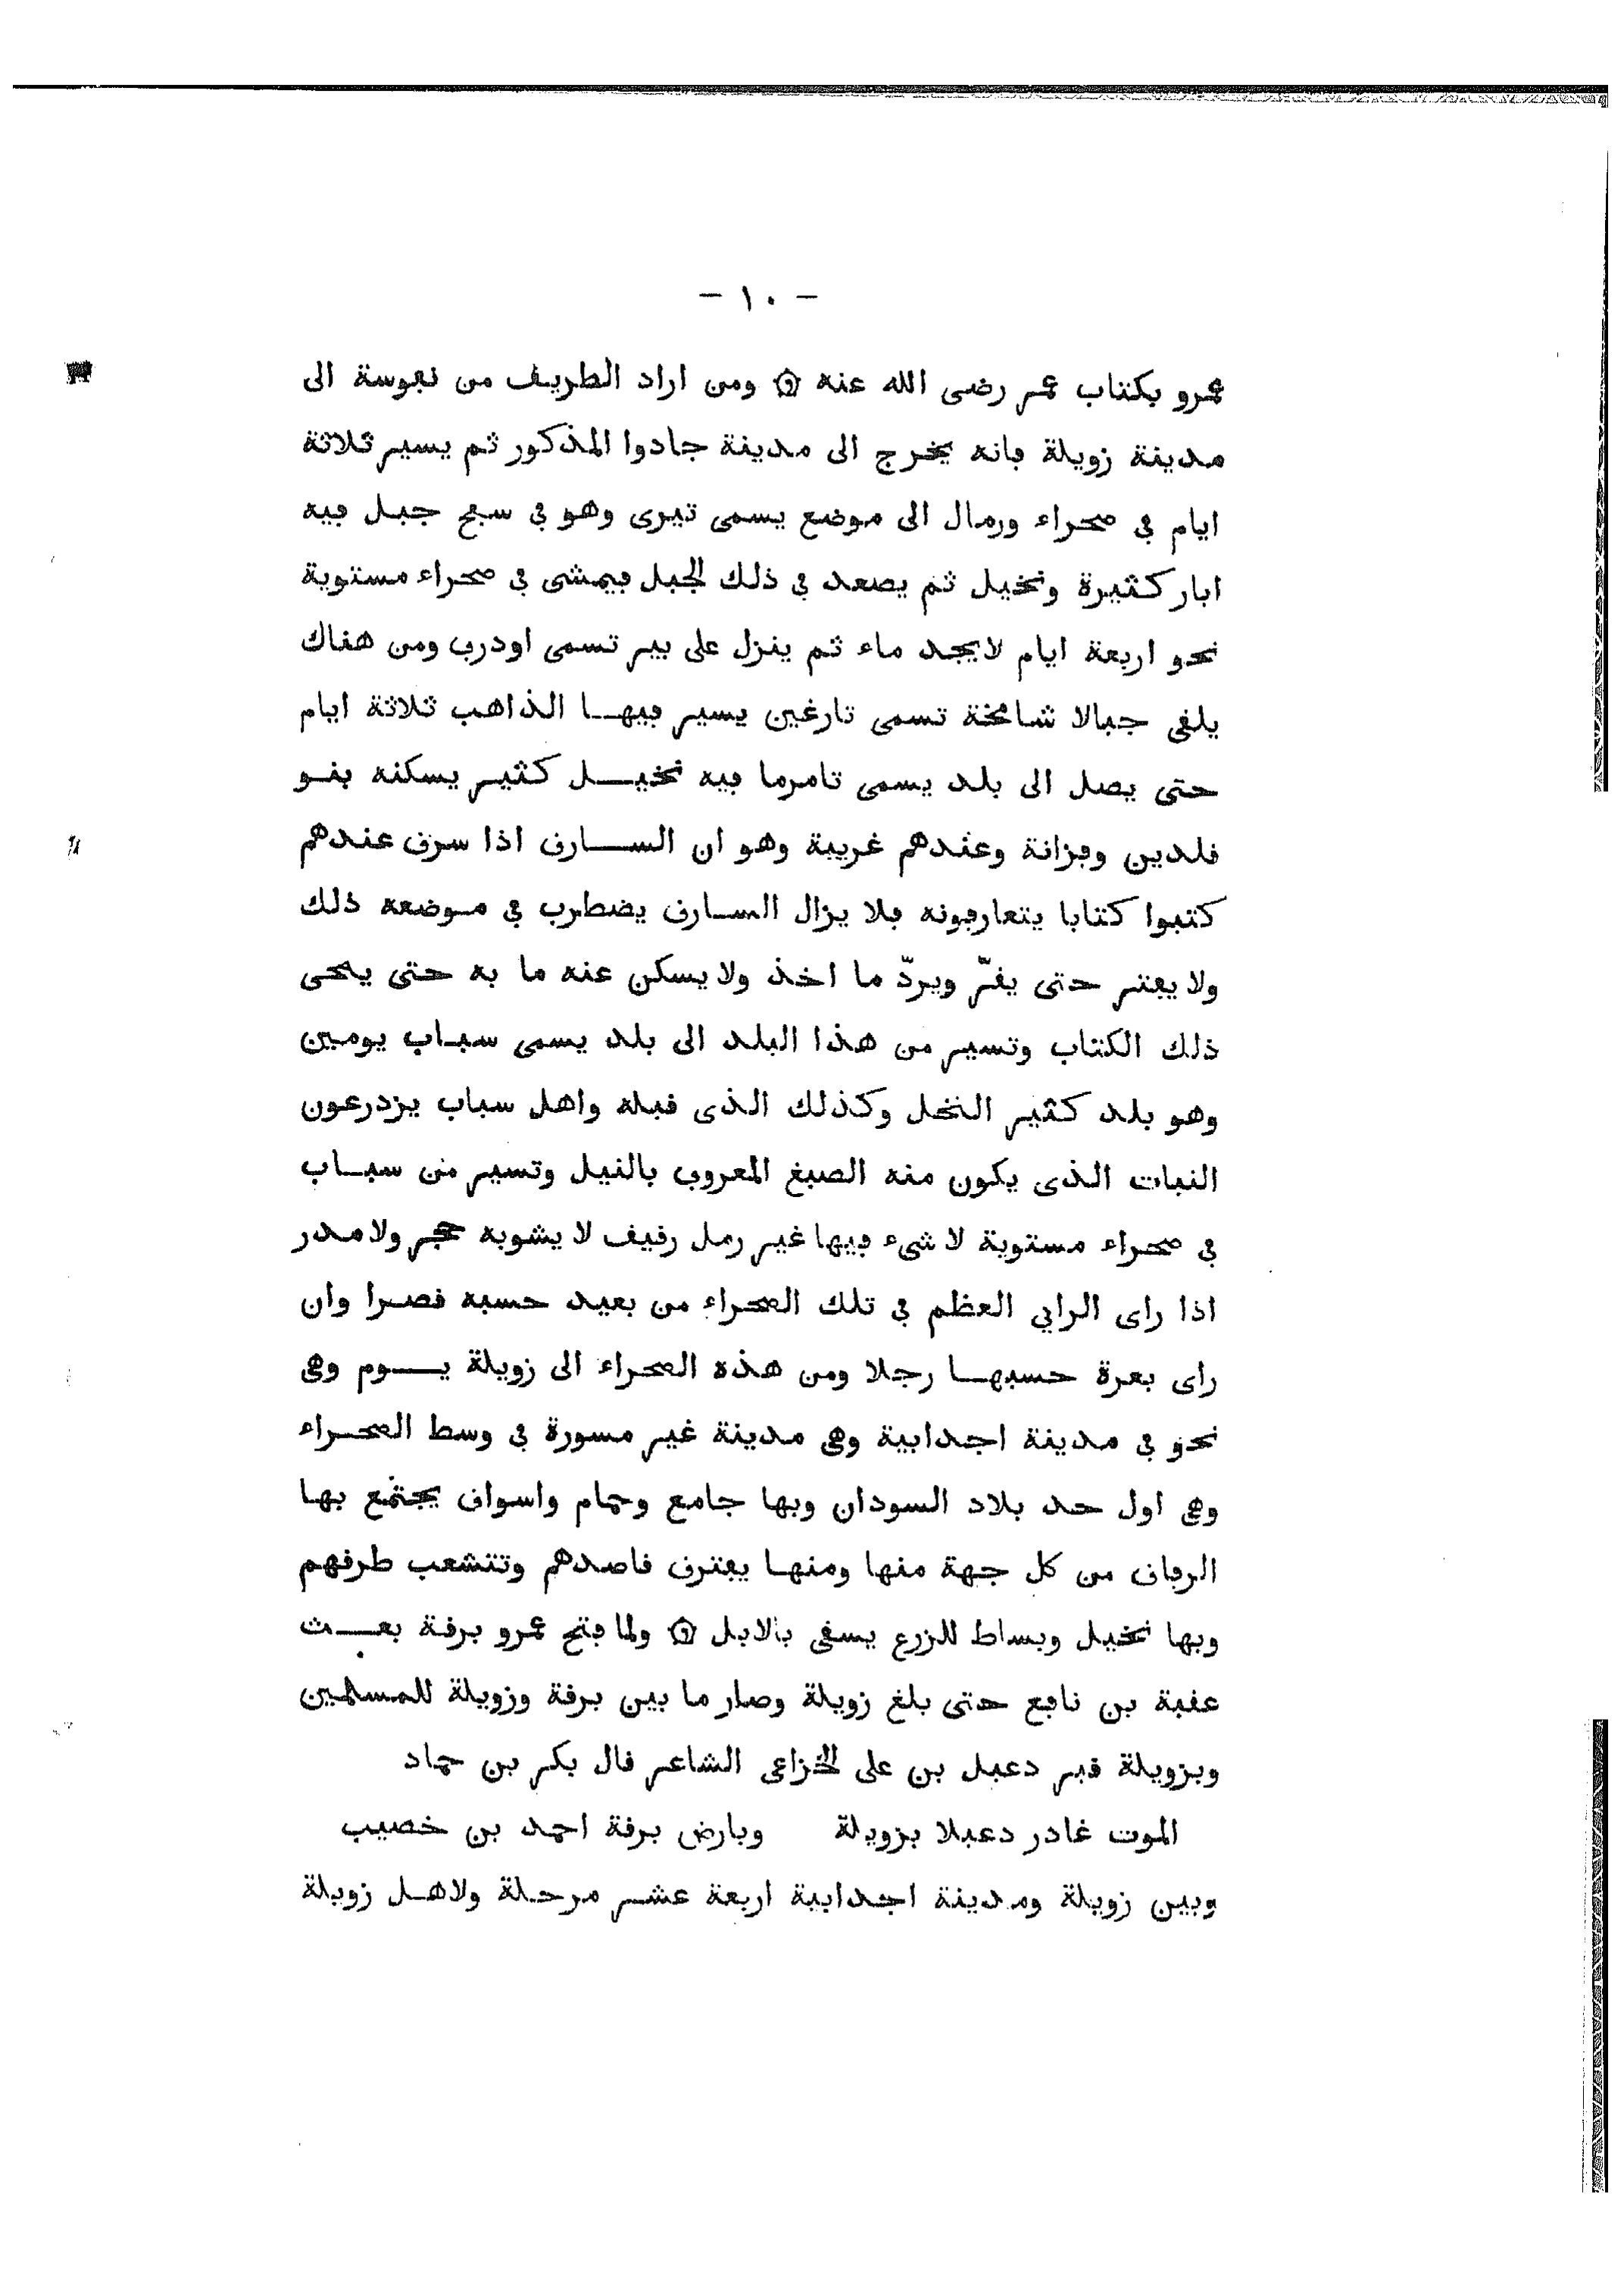 - ١٠ -
عمرو بكتاب عمر رضى الله عنه ۞ ومن اراد الطريق من نفوسة الى
مدينة زويلة فانه يخرج الى مدينة جادوا المذكور ثم يسير ثلاثة
ايام فى صحراء ورمال الى موضع يسمى تيرى وهو فى سفح جبل فيه
ابار كثيرة ونخيل ثم يصعد فى ذلك الجبل فيمشى فى صحراء مستوية
نحو اربعة ايام لا يجد ماء ثم ينزل على بير تسمى اودرب ومن هناك
يلقى جبالا شامخة تسمى تارغين يسير فيها الذاهب ثلاثة ايام
حتى يصل الى بلد يسمى تامرما فيه نخيل كثير يسكنه بنو
قلدين وفزانة وعندهم غريبة وهو ان السارق اذا سرق عندهم
كتبوا كتابا يتعارفونه فلا يزال السارق يضطرب فى موضعه ذلك
ولا يفتر حتى يقرّ ويردّ ما اخذ ولا يسكن عنه ما به حتى يمحى
ذلك الكتاب وتسير من هذا البلد الى بلد يسمى سباب يومين
وهو بلد كثير النخل وكذلك الذى قبله واهل سباب يزدرعون
النبات الذى يكون منه الصبغ المعروف بالنيل وتسير من سباب
فى صحراء مستوية لا شىء فيها غير رمل رقيق لا يشوبه حجر ولا مدر
اذا راى الرايى العظم فى تلك الصحراء من بعيد حسبه قصرا وان
راى بعرة حسبها رجلا ومن هذه الصحراء الى زويلة يوم وهى
نحو فى مدينة اجدابية وهى مدينة غير مسورة فى وسط الصحراء
وهى اول حد بلاد السودان وبها جامع وحمام واسواق يجتمع بها
الرفاق من كل جهة منها ومنها يفترق قاصدهم وتتشعب طرقهم
وبها نخيل وبساط للزرع يسقى بالابل ۞ ولما فتح عمرو برقة بعث
عقبة بن نافع حتى بلغ زويلة وصار ما بين برقة وزويلة للمسلمين
وبزويلة قبر دعبل بن على الخزاعى الشاعر قال بكر بن حماد
الموت غادر دعبلا بزويلة وبارض برقة احمد بن خصيب
وبين زويلة ومدينة اجدابية اربعة عشر مرحلة ولاهل زويلة